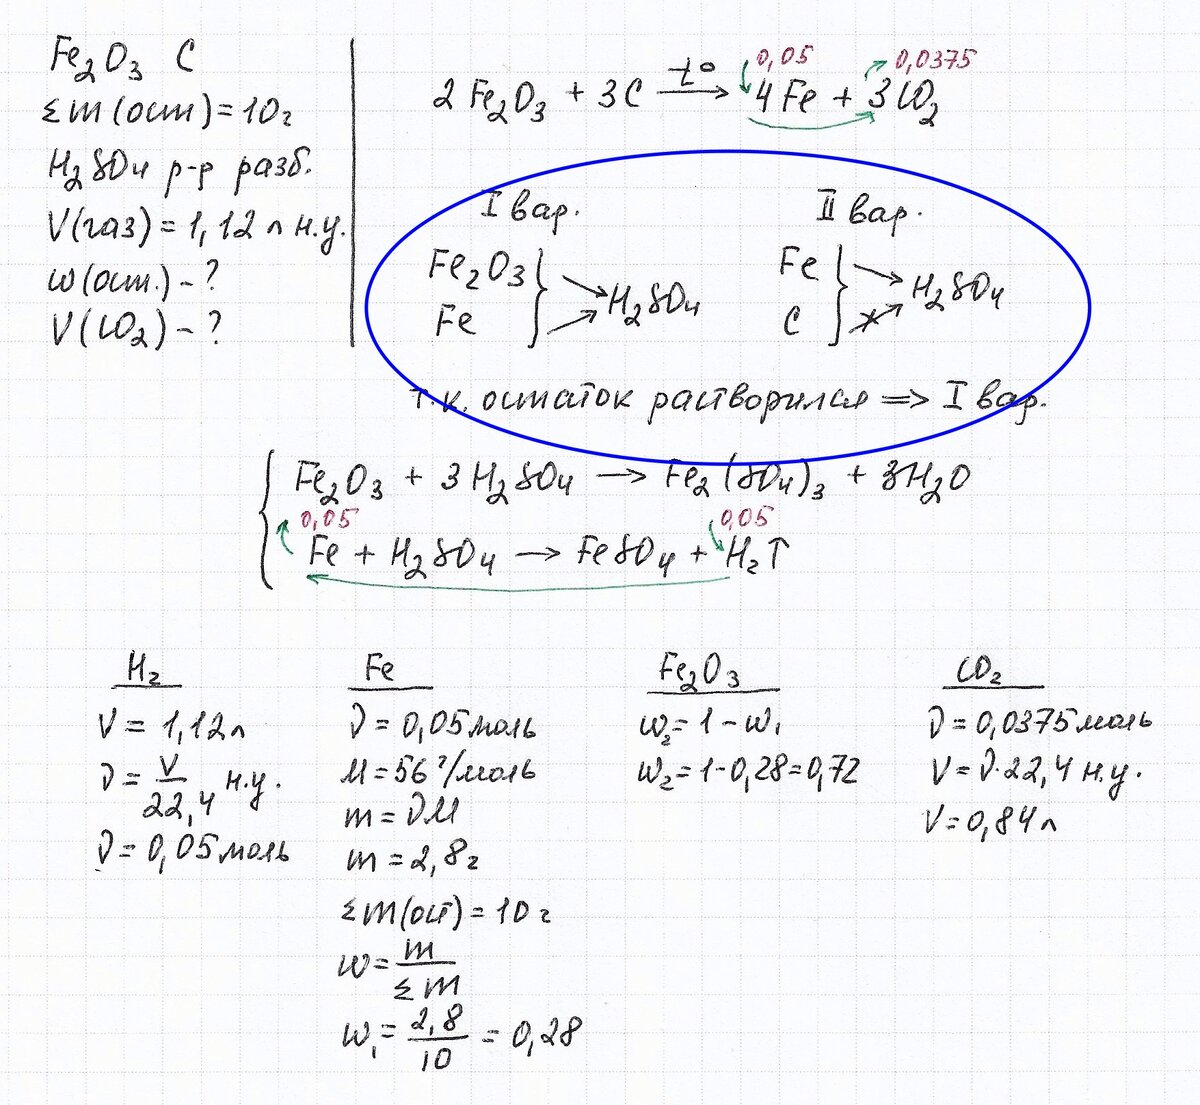 Fe2O3 C
Σm(ост)=10г
H2SO4 р-р разб.
V(газ)=1,12л н.у.
w(ост.)-?
V(CO2)-?
0,05 0,0375
2Fe2O3 + 3C t° → 4Fe + 3CO2
I вар. II вар.
Fe2O3 } → H2SO4 Fe } → H2SO4
Fe C
т.к. остаток растворился => I вар.
Fe2O3 + 3H2SO4 → Fe2(SO4)3 + 3H2O
0,05 0,05
Fe + H2SO4 → FeSO4 + H2↑
H2
V = 1,12л
ν = V/22,4 н.у.
ν = 0,05моль
Fe
ν = 0,05моль
M = 56 г/моль
m = νM
m = 2,8г
Σm(ост) = 10г
w = m/Σm
w1 = 2,8/10 = 0,28
Fe2O3
w2 = 1 - w1
w2 = 1-0,28=0,72
CO2
ν = 0,0375моль
V = ν·22,4 н.у.
V = 0,84л